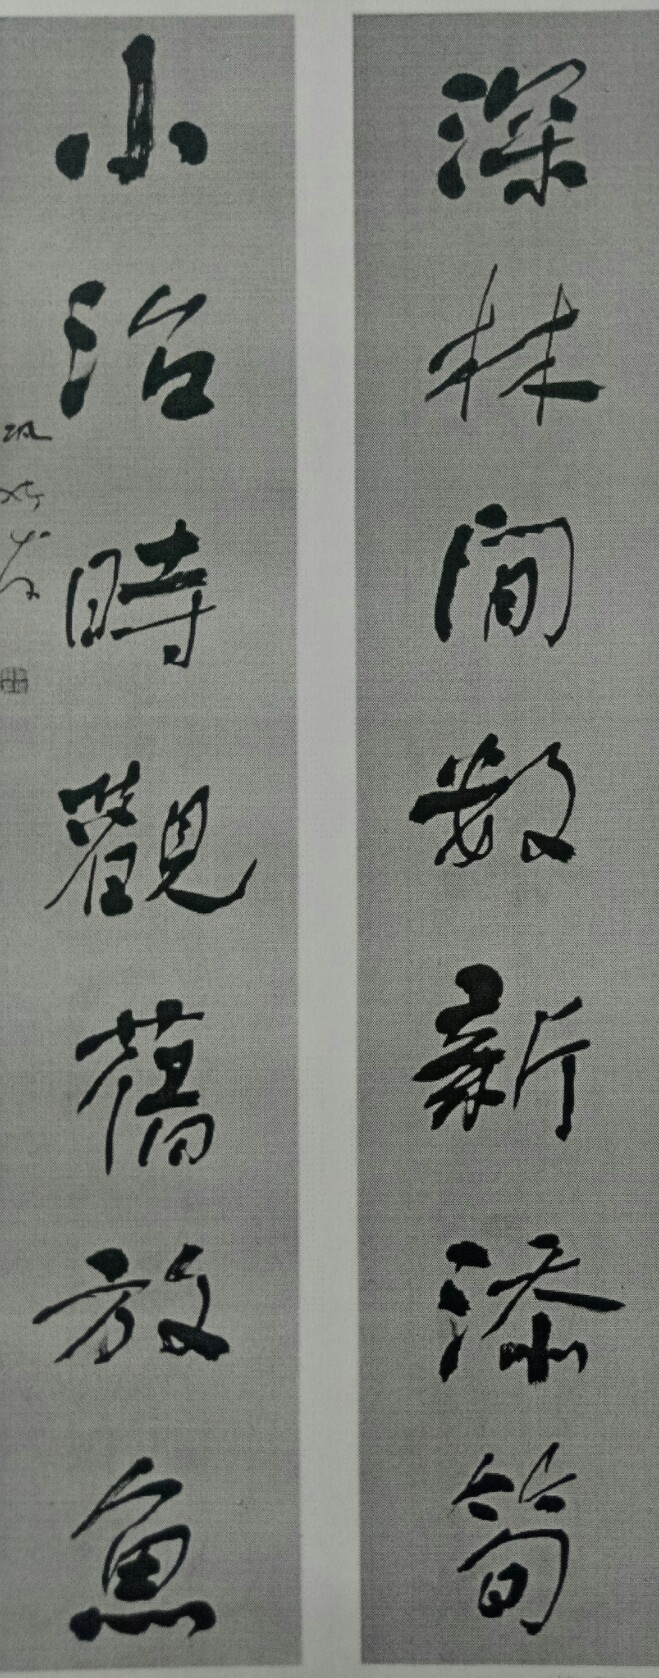 深林閒数新添筍
小沼時觀舊放魚